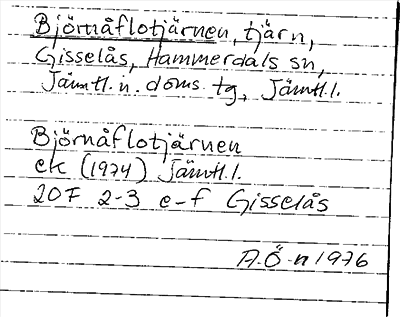 Björnåflotjärnen, tjärn,
Gisselås, Hammerdals sn,
Jämtl. n. doms. tg, Jämtl. l.
Björnåflotjärnen
ek (1974) Jämtl. l.
20F 2-3 e-f Gisselås
A.Ö-n 1976